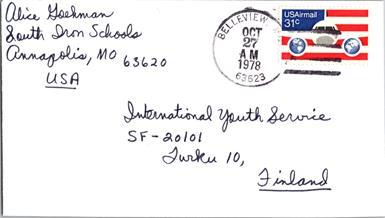 Alice Goehman
South Iron Schools
Annapolis, MO
63620
USA
BELLEVIEW
OCT
27
AM
1978
63623
USAirmail
31c
International Youth Service
SF-20101
Turku 10,
Finland